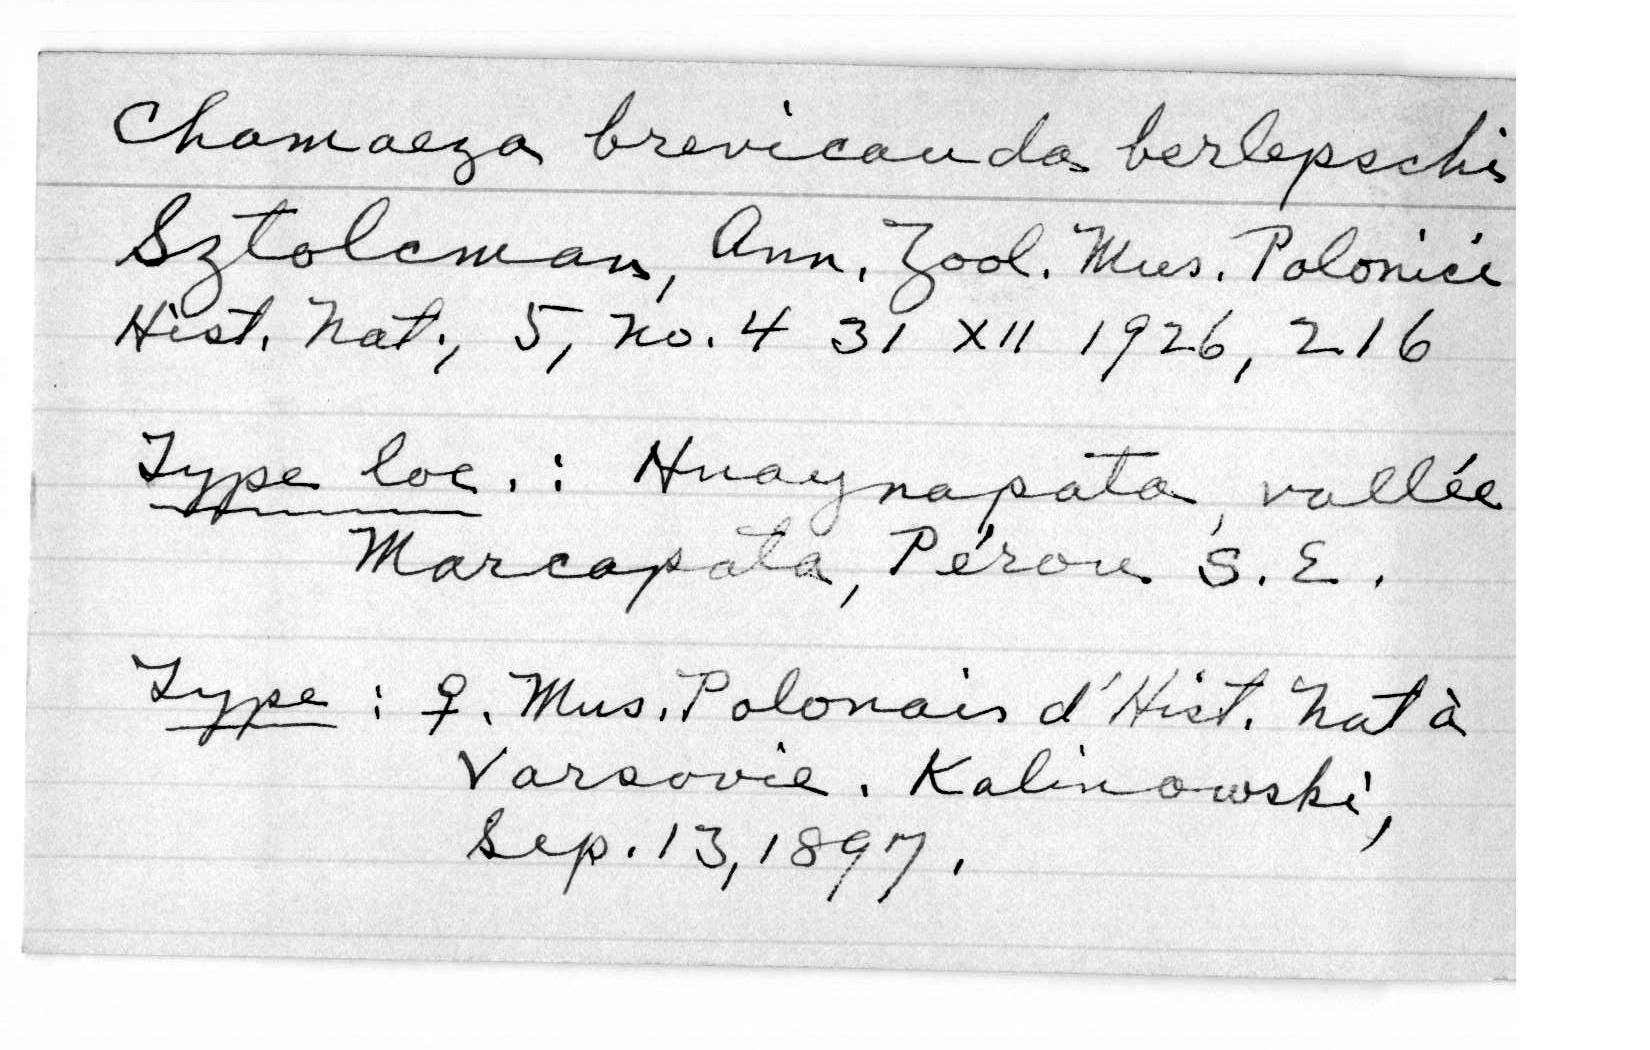 Chamaeza brevicauda berlepschi
Sztolcman, Ann. Zool. Mus. Polonici
Hist. Nat., 5, no. 4 31 XII 1926, 216
Type loc. : Huaynapata, vallée
Marcapata, Pérou S. E.
Type : ♀. Mus. Polonais d'Hist. Nat à
Varsovie. Kalinowski,
Sep. 13, 1897.